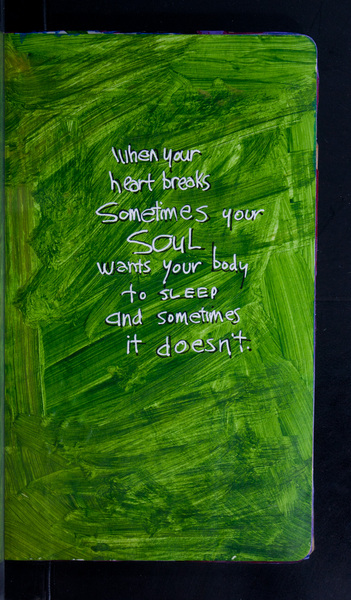 When your
heart breaks
Sometimes your
SOUL
wants your body
to SLEEP
and sometimes
it doesn't.